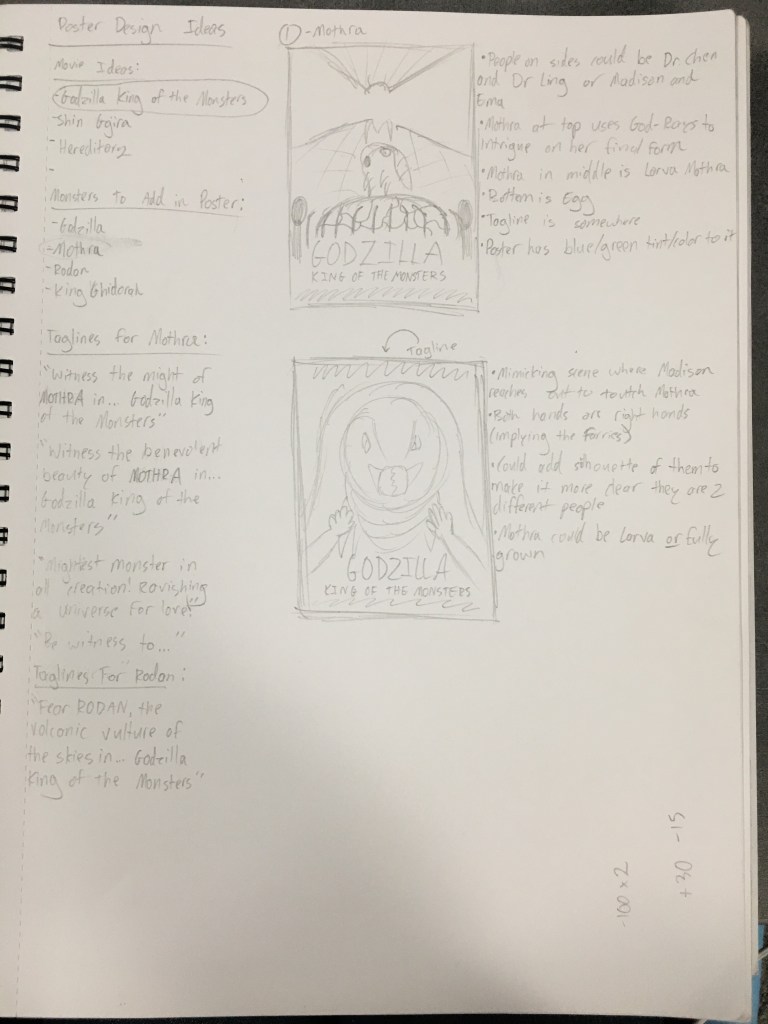 Poster Design Ideas
Movie Ideas:
-Godzilla King of the Monsters
-Shin Gojira
-Hereditary
-
Monsters To Add in Poster:
-Godzilla
-Mothra
-Rodan
-King Ghidorah
Taglines for Mothra:
"Witness the might of
MOTHRA in... Godzilla King
of the Monsters"
"Witness the benevolent
beauty of MOTHRA in...
Godzilla King of the
Monsters"
"Mightest monster in
all creation! Ravishing
a universe for love!"
"Be witness to..."
Taglines For Rodan:
"Fear RODAN, the
volcanic vulture of
the skies in... Godzilla
King of the Monsters"
① -Mothra
GODZILLA
KING OF THE MONSTERS
•People on sides could be Dr. Chen
and Dr Ling or Madison and
Ema
•Mothra at top uses God-Rays to
intrigue on her final form
•Mothra in middle is Larva Mothra
•Bottom is Egg
•Tagline is somewhere
•Poster has blue/green tint/color to it
Tagline
GODZILLA
KING OF THE MONSTERS
•Mimicking scene where Madison
reaches out to touch Mothra
•Both hands are right hands
(implying the Fairies)
•Could add silhouette of them to
make it more clear they are 2
different people
•Mothra could be Larva or fully
grown
-100 x 2
+30 -15